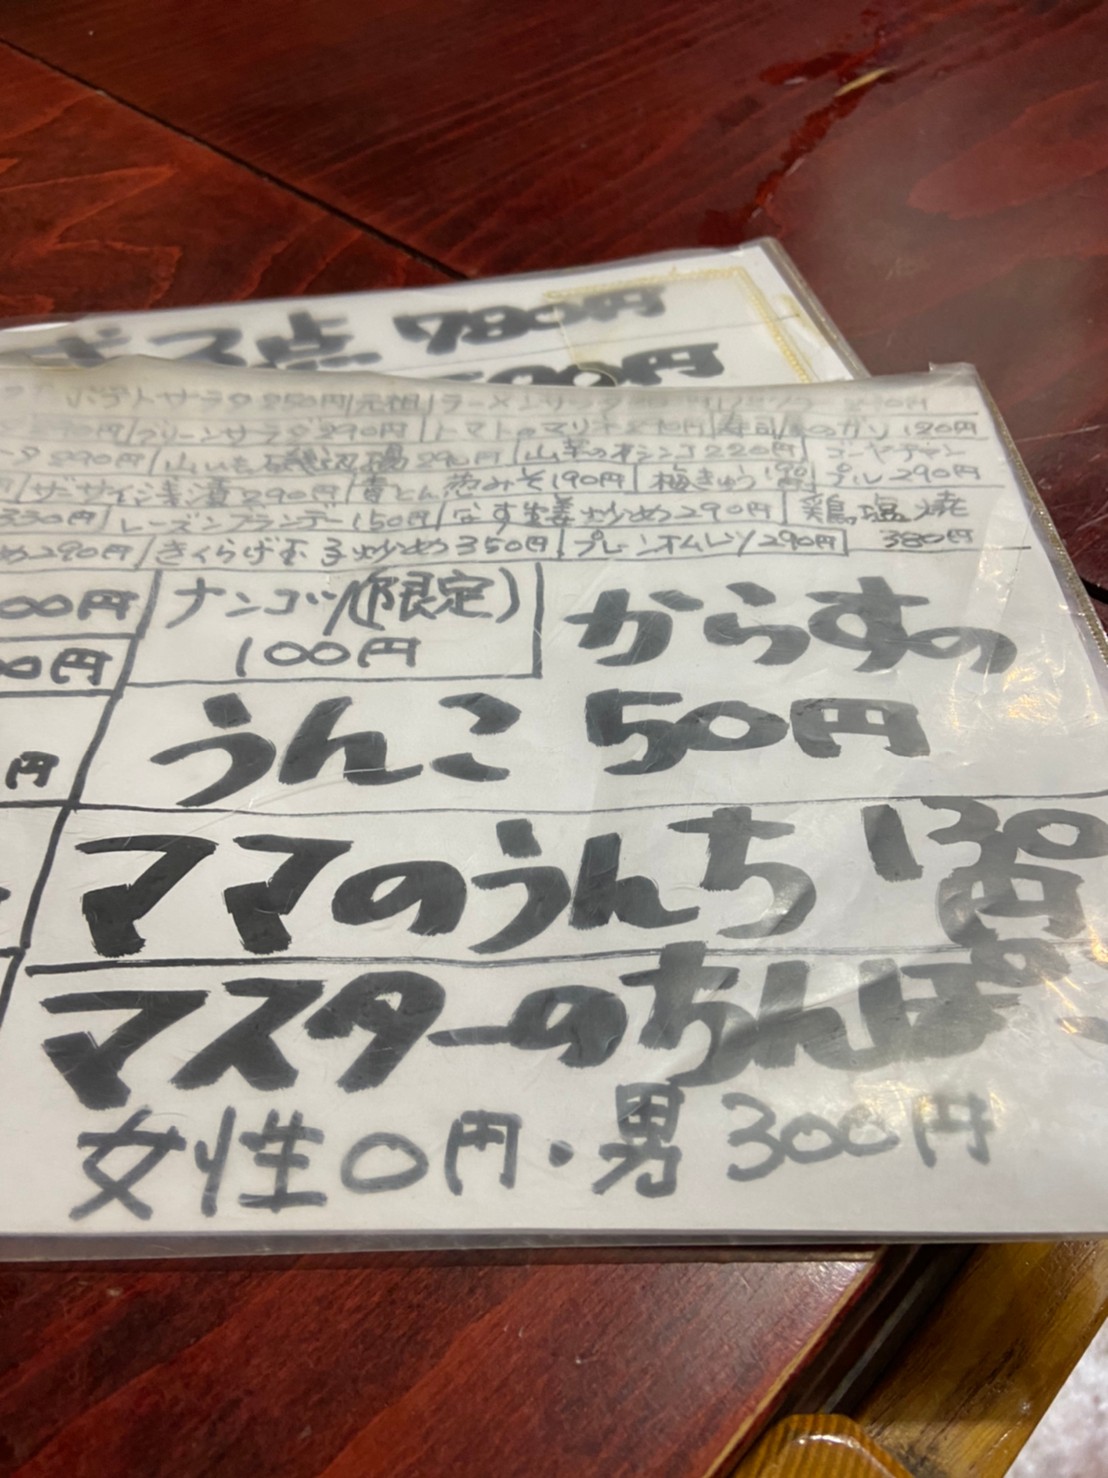 ボス点 780円
00円
ポテトサラダ 250円 元祖 ラーメンサラダ
グリーンサラダ 290円 トマトのマリネ 290円 寿司屋のガリ 120円
290円 山いも磯辺揚 290円 山芋のオシンコ 220円 ゴーヤチャン
ザーサイ浅漬 290円 青とん 190円 梅きゅう 190円 プル 290円
330円 レーズンブランデー 150円 なす生姜炒め 290円 鶏塩焼
め 290円 きくらげ玉子炒め 350円 プレーンオムレツ 290円 380円
00円 ナンコツ(限定) からすの
00円 100円
うんこ 50円
円
ママのうんち 130円
マスターのちんぽ
女性0円・男300円